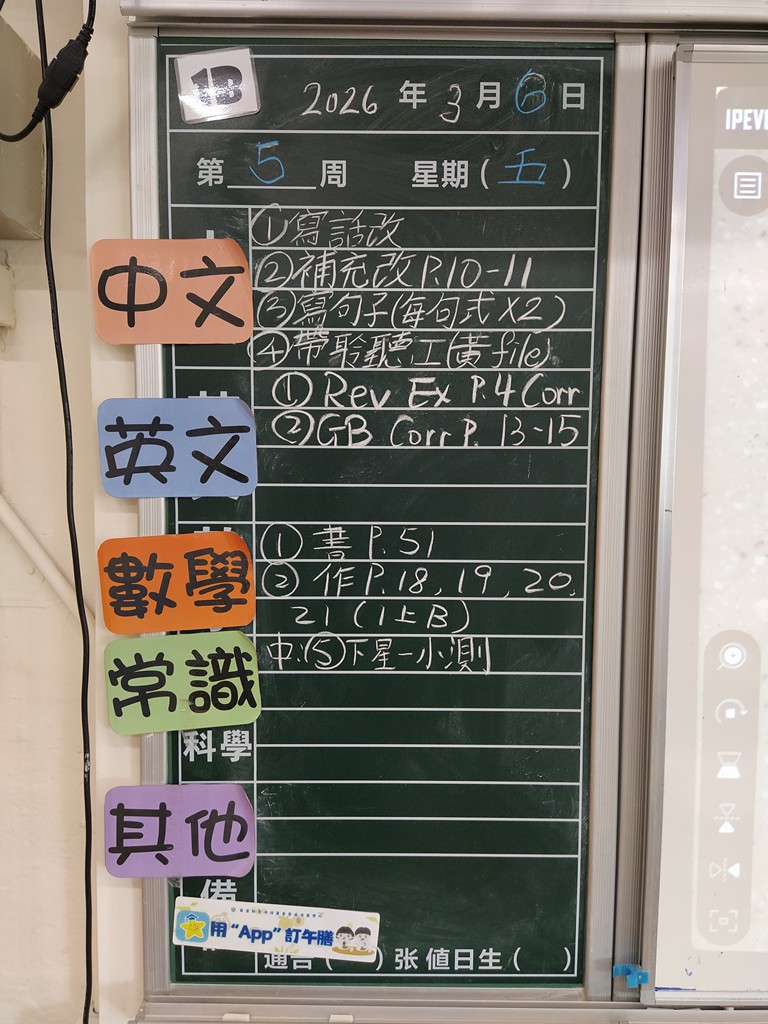 1B
2026 年 3 月 6 日
第 5 周 星期 ( 五 )
中文
①寫話改
②補充改 P.10-11
③寫句子(每句式X2)
④帶聆聽工(黃file)
英文
① Rev Ex P.4 Corr
② GB Corr P. 13-15
數學
① 書 P.51
② 作 P.18, 19, 20,
21 (1上B)
常識
中:⑤下星一小測
科學
其他
備
用 “App” 訂午膳
通告 ( ) 张 值日生 ( )
IPEV